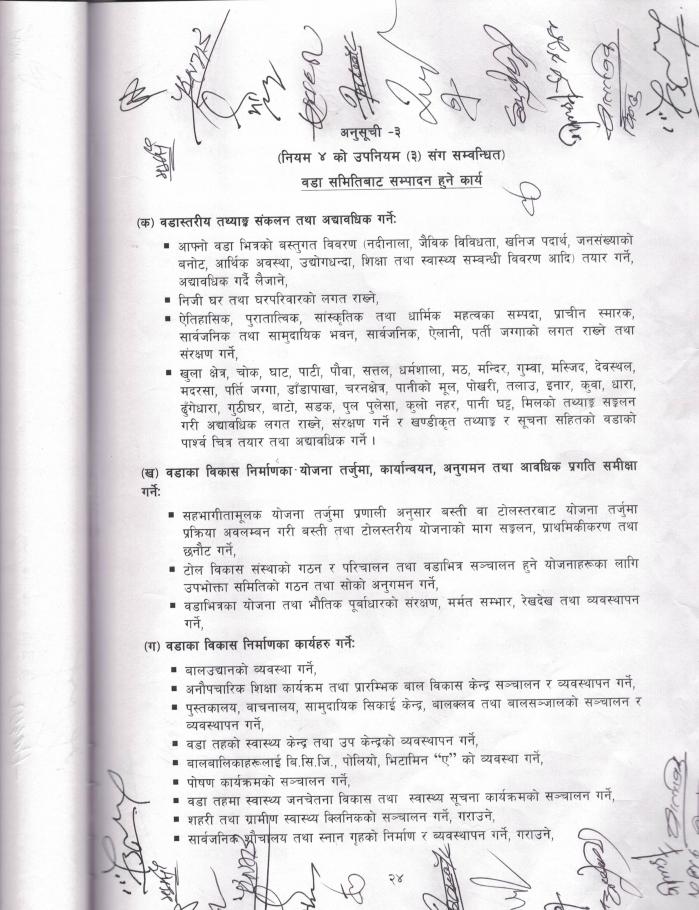 अनुसूची -३
(नियम ४ को उपनियम (३) संग सम्वन्धित)
वडा समितिबाट सम्पादन हुने कार्य
(क) वडास्तरीय तथ्याङ्क संकलन तथा अद्यावधिक गर्ने:
▪ आफ्नो वडा भित्रको बस्तुगत विवरण (नदीनाला, जैविक विविधता, खनिज पदार्थ, जनसंख्याको
बनोट, आर्थिक अवस्था, उद्योगधन्दा, शिक्षा तथा स्वास्थ्य सम्बन्धी विवरण आदि) तयार गर्ने,
अद्यावधिक गर्दै लैजाने,
▪ निजी घर तथा घरपरिवारको लगत राख्ने,
▪ ऐतिहासिक, पुरातात्विक, सांस्कृतिक तथा धार्मिक महत्वका सम्पदा, प्राचीन स्मारक,
सार्वजनिक तथा सामुदायिक भवन, सार्वजनिक, ऐलानी, पर्ती जग्गाको लगत राख्ने तथा
संरक्षण गर्ने,
▪ खुला क्षेत्र, चोक, घाट, पाटी, पौवा, सत्तल, धर्मशाला, मठ, मन्दिर, गुम्वा, मस्जिद, देवस्थल,
मदरसा, पर्ति जग्गा, डाँडापाखा, चरनक्षेत्र, पानीको मूल, पोखरी, तलाउ, इनार, कुवा, धारा,
ढुँगेधारा, गुठीघर, बाटो, सडक, पुल पुलेसा, कुलो नहर, पानी घट्ट, मिलको तथ्याङ्क सङ्कलन
गरी अद्यावधिक लगत राख्ने, संरक्षण गर्ने र खण्डीकृत तथ्याङ्क र सूचना सहितको वडाको
पार्श्व चित्र तयार तथा अद्यावधिक गर्ने ।
(ख) वडाका विकास निर्माणका योजना तर्जुमा, कार्यान्वयन, अनुगमन तथा आवधिक प्रगति समीक्षा
गर्ने:
▪ सहभागीतामूलक योजना तर्जुमा प्रणाली अनुसार बस्ती वा टोलस्तरबाट योजना तर्जुमा
प्रक्रिया अवलम्बन गरी बस्ती तथा टोलस्तरीय योजनाको माग सङ्कलन, प्राथमिकीकरण तथा
छनौट गर्ने,
▪ टोल विकास संस्थाको गठन र परिचालन तथा वडाभित्र सञ्चालन हुने योजनाहरूका लागि
उपभोक्ता समितिको गठन तथा सोको अनुगमन गर्ने,
▪ वडाभित्रका योजना तथा भौतिक पूर्वाधारको संरक्षण, मर्मत सम्भार, रेखदेख तथा व्यवस्थापन
गर्ने,
(ग) वडाका विकास निर्माणका कार्यहरु गर्ने:
▪ बालउद्यानको व्यवस्था गर्ने,
▪ अनौपचारिक शिक्षा कार्यक्रम तथा प्रारम्भिक बाल विकास केन्द्र सञ्चालन र व्यवस्थापन गर्ने,
▪ पुस्तकालय, वाचनालय, सामुदायिक सिकाई केन्द्र, बालक्लव तथा बालसञ्जालको सञ्चालन र
व्यवस्थापन गर्ने,
▪ वडा तहको स्वास्थ्य केन्द्र तथा उप केन्द्रको व्यवस्थापन गर्ने,
▪ बालबालिकाहरूलाई बि.सि.जि., पोलियो, भिटामिन “ए” को व्यवस्था गर्ने,
▪ पोषण कार्यक्रमको सञ्चालन गर्ने,
▪ वडा तहमा स्वास्थ्य जनचेतना विकास तथा स्वास्थ्य सूचना कार्यक्रमको सञ्चालन गर्ने,
▪ शहरी तथा ग्रामीण स्वास्थ्य क्लिनिकको सञ्चालन गर्ने, गराउने,
▪ सार्वजनिक शौचालय तथा स्नान गृहको निर्माण र व्यवस्थापन गर्ने, गराउने,
२४